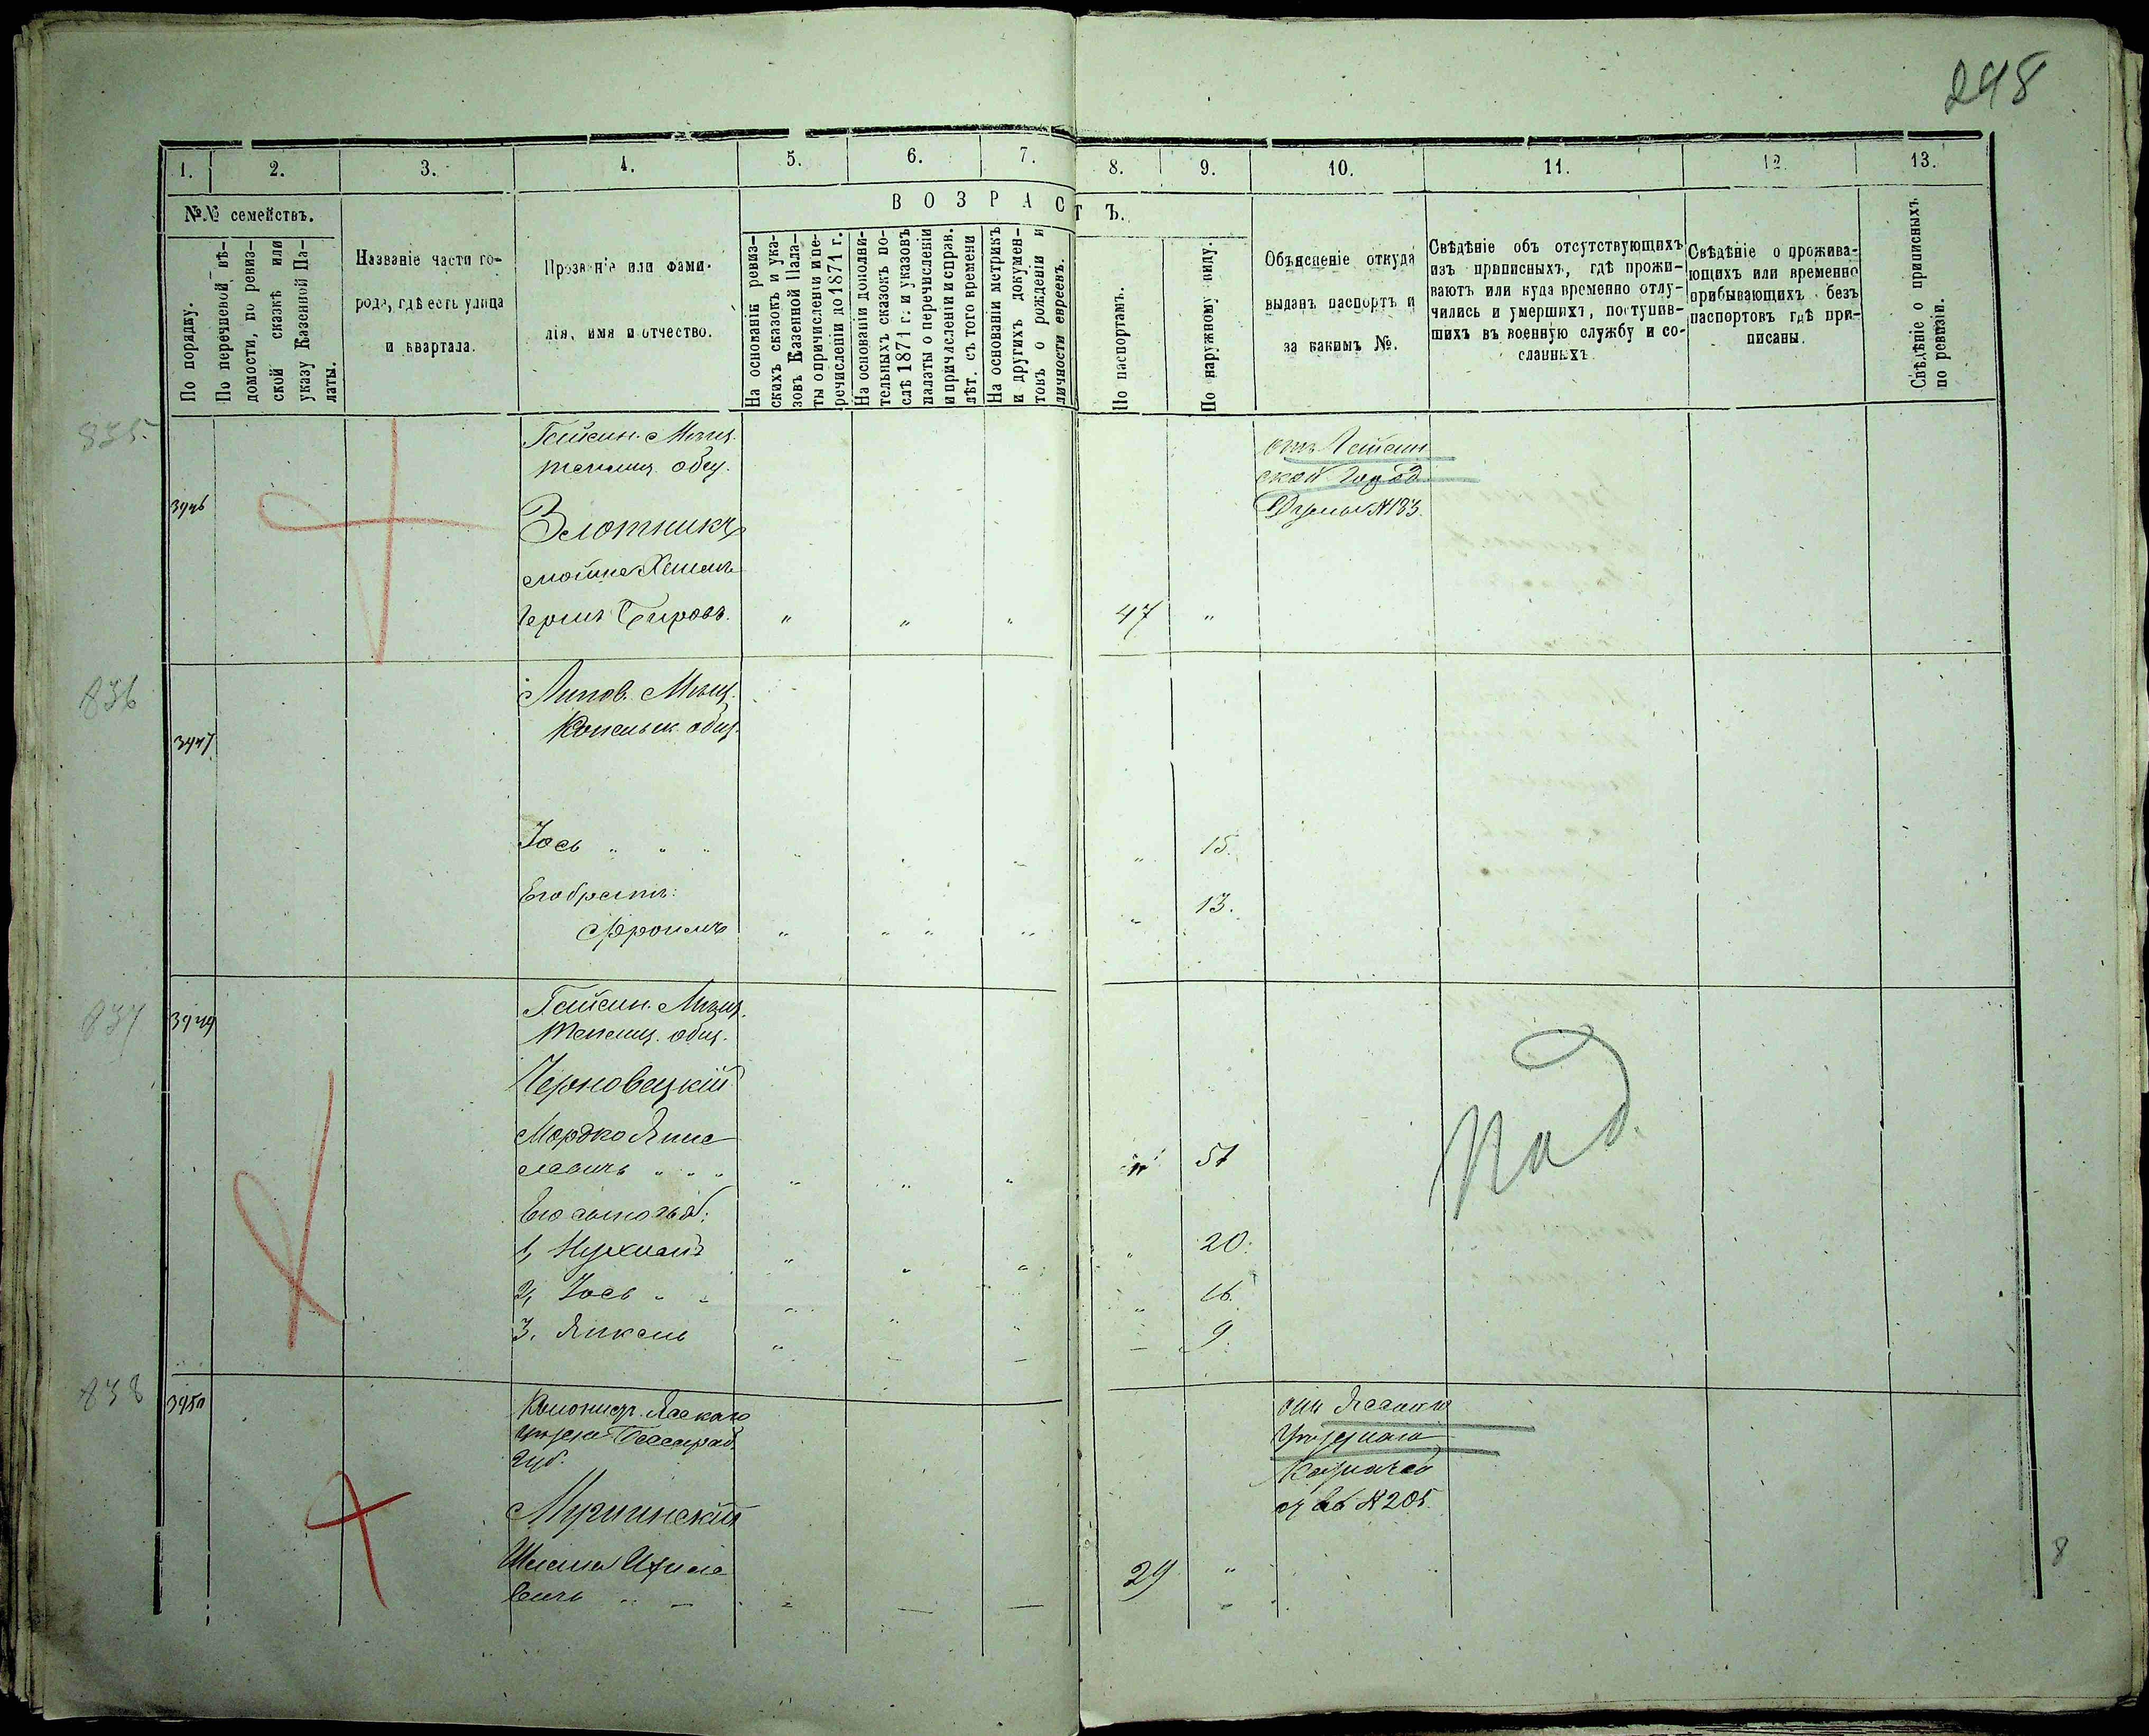 248
1. 2. 3. 4. 5. 6. 7. 8. 9. 10. 11. 12. 13.
№№ семействъ.
ВОЗРАСТЪ.
По порядку.
По перечневой вѣ-
домости, по ревиз-
ской сказкѣ или
указу Казенной Па-
латы.
Названіе части го-
рода, гдѣ есть улица
и квартала.
Прозваніе или фами-
лія, имя и отчество.
На основаніи ревиз-
скихъ сказокъ и ука-
зовъ Казенной Пала-
ты о причисленіи и пе-
речисленіи до 1871 г.
На основаніи дополни-
тельныхъ сказокъ по-
слѣ 1871 г. и указовъ
палаты о перечисленіи
и причисленіи и справ.
лѣт. съ того времени
На основаніи метрикъ
и другихъ докумен-
товъ о рожденіи и
личности евреевъ.
По паспортамъ.
По наружному виду.
Объясненіе откуда
выданъ паспортъ и
за какимъ №.
Свѣдѣніе объ отсутствующихъ
изъ приписныхъ, гдѣ прожи-
ваютъ или куда временно отлу-
чились и умершихъ, поступив-
шихъ въ военную службу и со-
сланныхъ
Свѣдѣніе о прожива-
ющихъ или временно
прибывающихъ безъ
паспортовъ гдѣ при-
писаны.
Свѣдѣніе о приписныхъ
по ревизіи.
835
Гайсин. Мѣщ.
общ.
3446
Злотникъ
47 "
отъ Гайсин
ской Город.
Думы № 183.
836
Липов. Мѣщ.
общ.
3447
Іось " " " 15.
Его братъ:
Фроимъ " 13.
837
3449
Гайсин. Мѣщ.
общ.
Черновецкій
Мордко
" 51
Его сыновья:
1, Нухимъ " 20.
2, Іось " 16.
3, Янкель 9.
Над.
838
3450
Колонистъ Ясскаго
уѣзда Бессараб.
Губ.
вичъ
29 "
отъ Ясскаго
Уѣзднаго
Казначей
ства № 205.
8